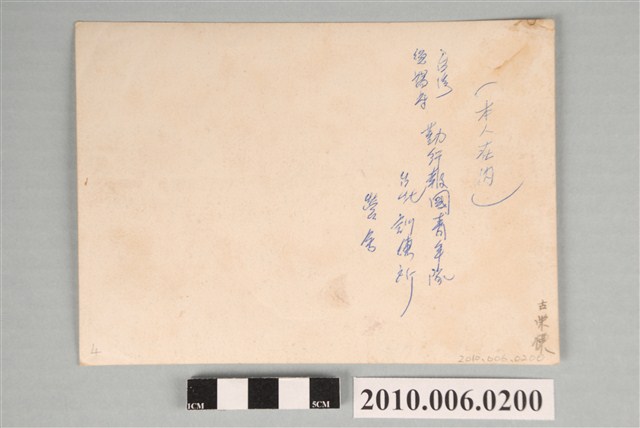 (本人在内)
台湾
總督府
勤行報國青年隊
台北訓練所
營舍
4
2010.006.0200
1CM 5CM
2010.006.0200